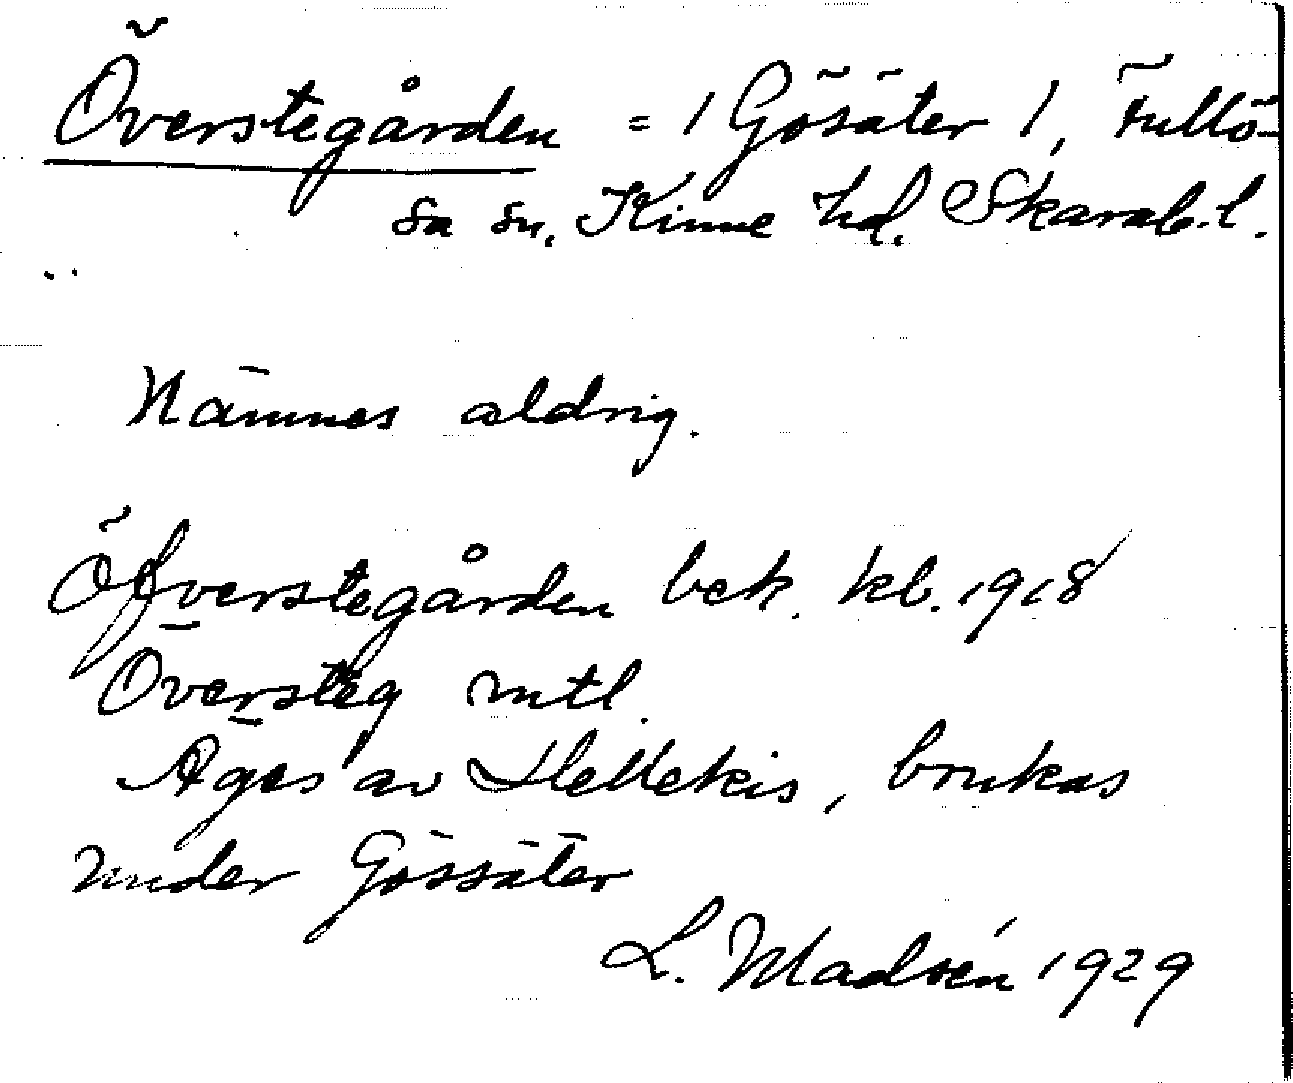 Överstegården = 1 Gösäter 1, Fullö-
sa sn. Kinne hd. Skarab. l.
Nämnes aldrig.
Öfverstegården bek. kl. 1918
Översteg mtl.
Äges av Hellekis, brukas
under Gössäter
L. Madsén 1929